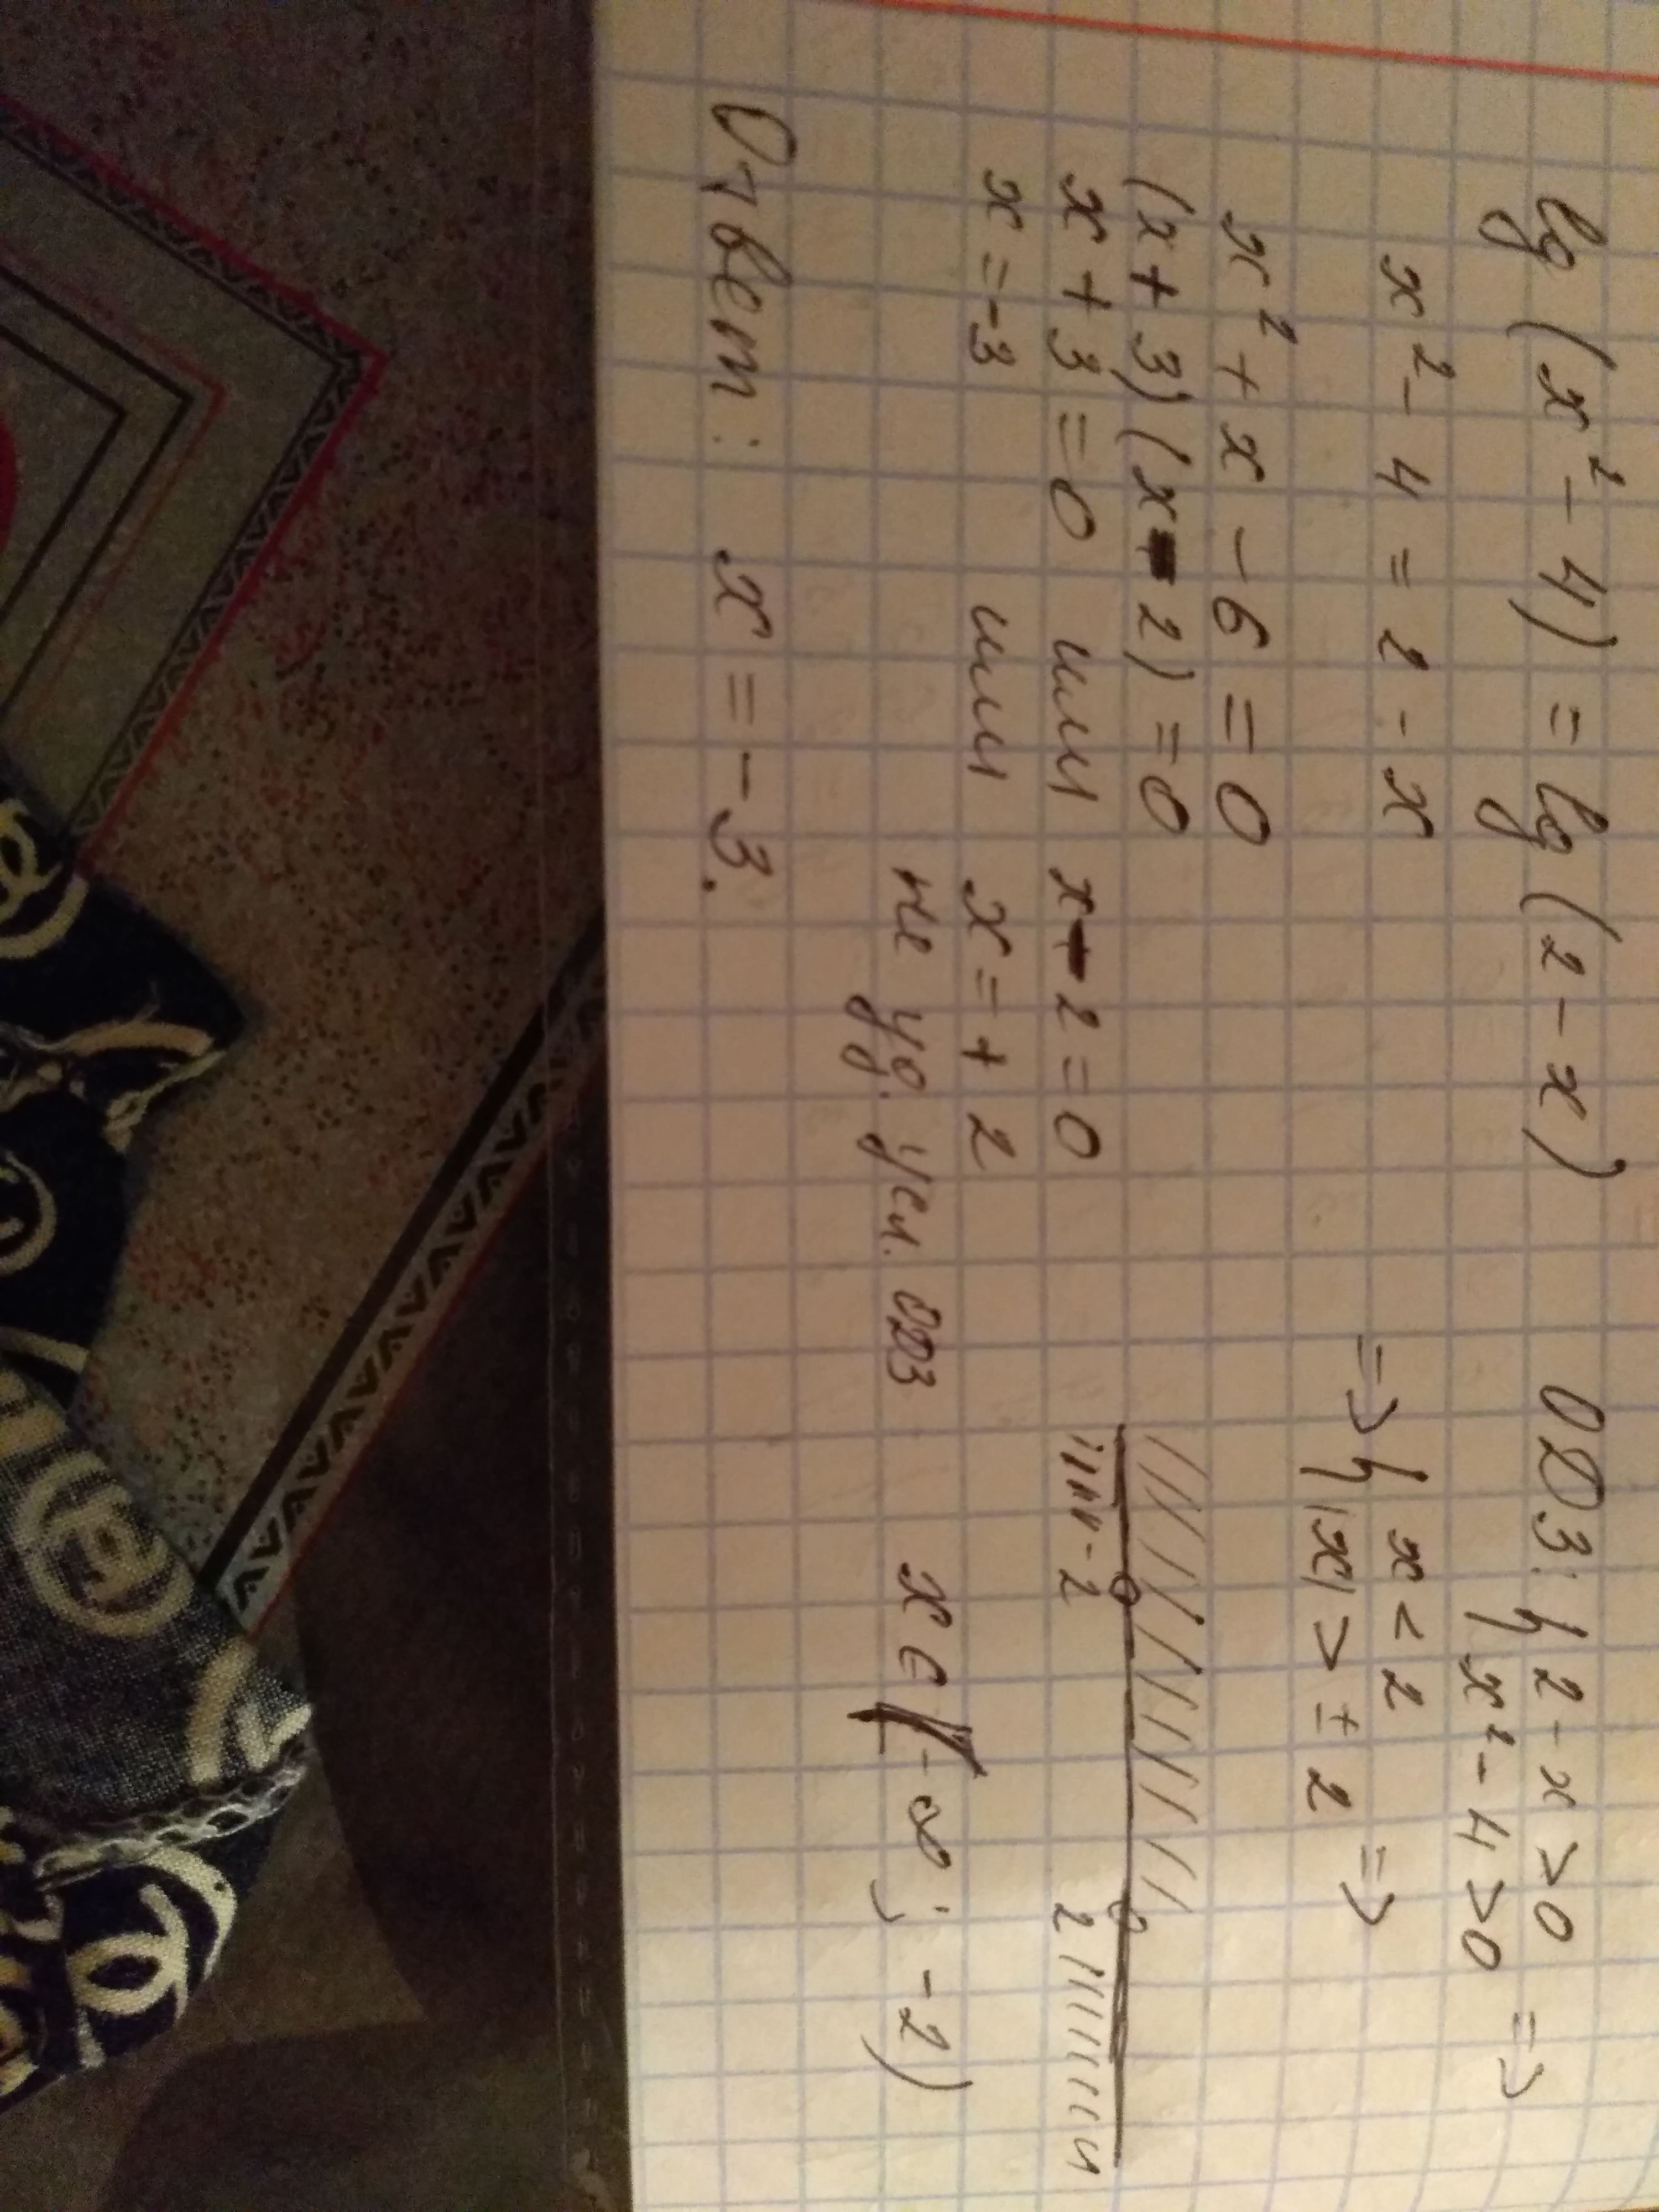 lg (x² - 4) = lg (2 - x)
x² - 4 = 2 - x
x² + x - 6 = 0
(x + 3)(x - 2) = 0
x + 3 = 0 или x - 2 = 0
x = -3 или x = + 2
не уд. усл. ОДЗ
Ответ: x = -3.
ОДЗ: { 2 - x > 0
x² - 4 > 0 =>
=> { x < 2
|x| > ± 2 =>
-2 2
x ∈ (-∞; -2)